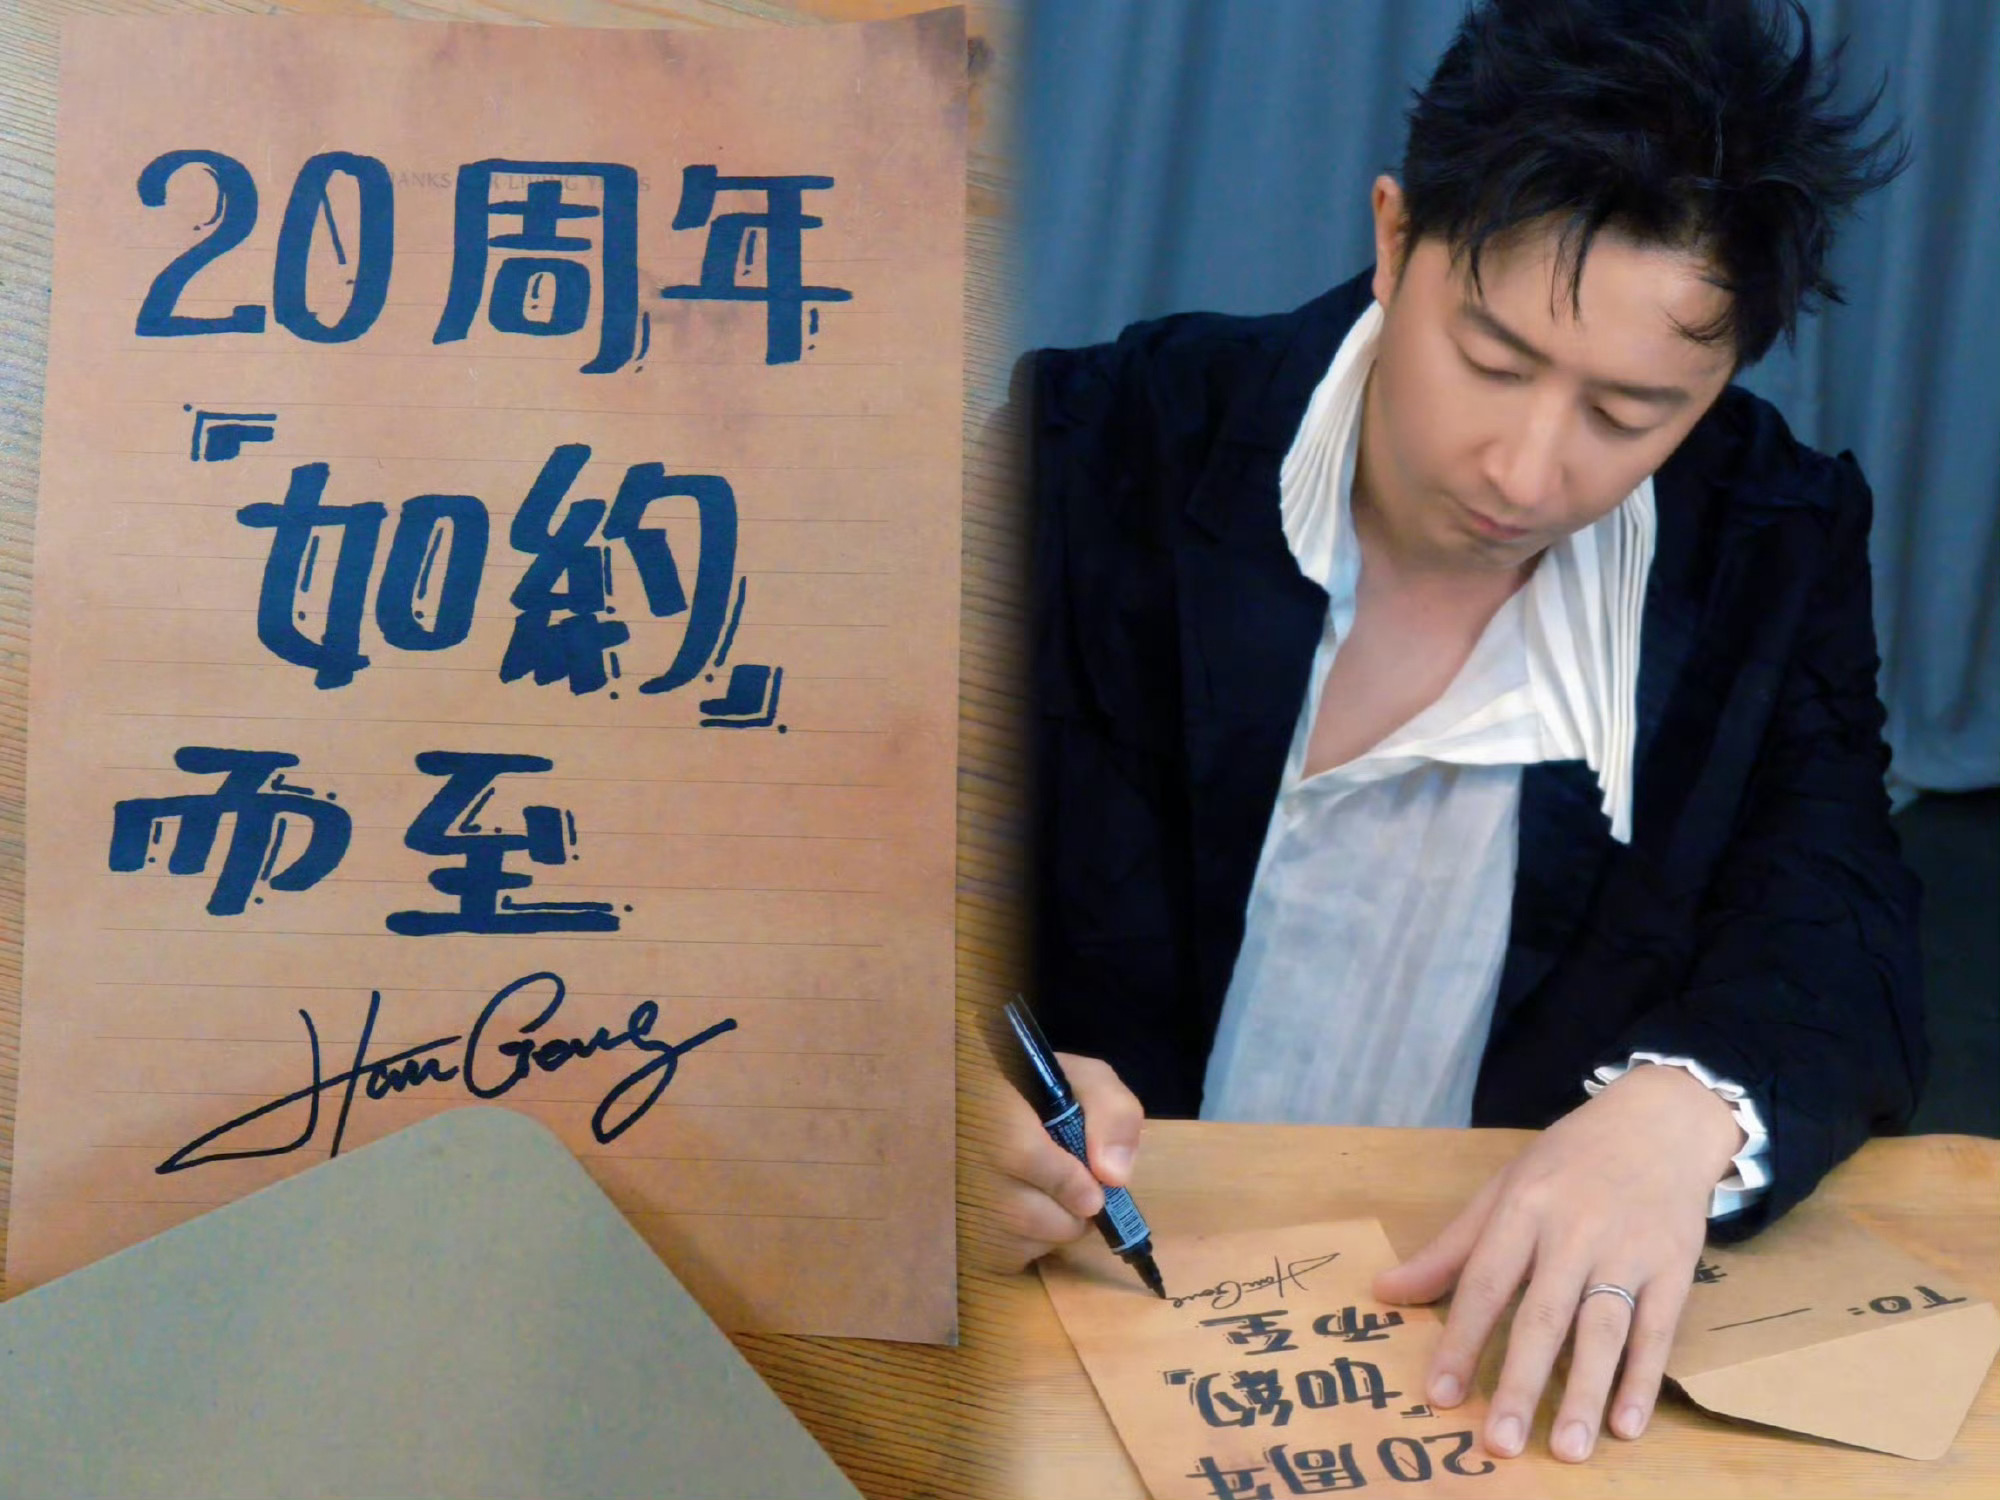 20周年
『如約』
而至
Han Geng
Han Geng
而至
『如約』
20周年
TO: